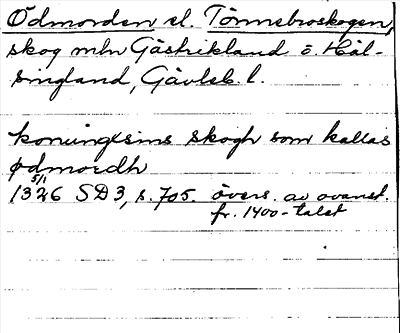 Ödmorden el. Tönnebroskogen,
skog mln Gästrikland o. Häl-
singland, Gävleb. l.
konungxsins skogh som kallas
ødmordh
5/1
1326 SD3, s. 705. övers. av ovanst.
fr. 1400-talet